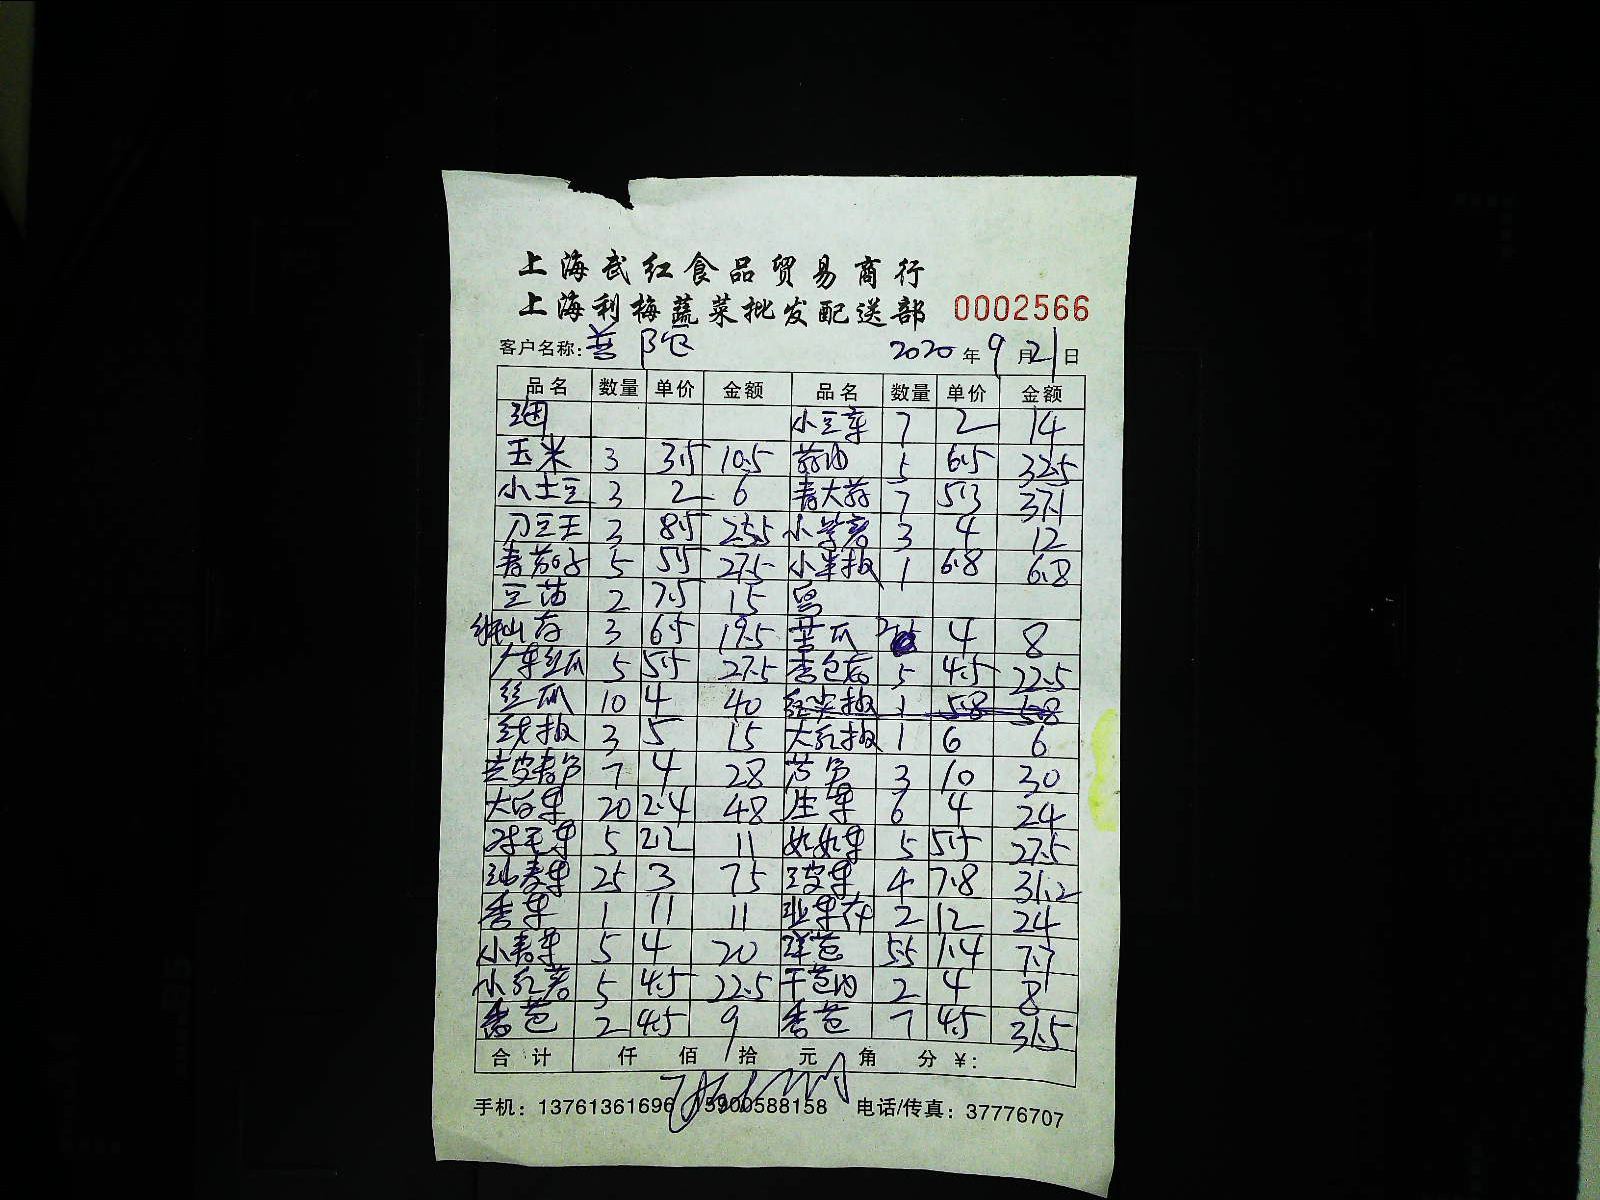 上海武红食品贸易商行
上海利梅蔬菜批发配送部 0002566
客户名称: 普陀 2020年9月21日
品名 数量 单价 金额 品名 数量 单价 金额
7 2 14
玉米 3 3.5 10.5 蒜油 5 6.5 32.5
小土豆 3 2 6 青大蒜 7 5.3 37.1
刀豆王 3 8.5 25.5 3 4 12
青茄子 5 5.5 27.5 小米椒 1 6.8 6.8
豆苗 2 7.5 15
山药 3 6.5 19.5 苦瓜 4 8
丝瓜 5 5.5 27.5 5 4.5 22.5
丝瓜 10 4 40 红尖椒 1 5.8 5.8
线椒 3 5 15 大红椒 1 6 6
7 4 28 芦笋 3 10 30
大白菜 20 2.4 48 生菜 6 4 24
5 2.2 11 5 5.5 27.5
25 3 75 4 7.8 31.2
香菜 1 11 11 2 12 24
小青菜 5 4 20 洋葱 5.5 1.4 7.7
小红薯 5 4.5 22.5 2 4 8
香葱 2 4.5 9 香葱 7 4.5 31.5
合计 仟 佰 拾 元 角 分 ¥:
手机: 13761361696 15900588158 电话/传真: 37776707